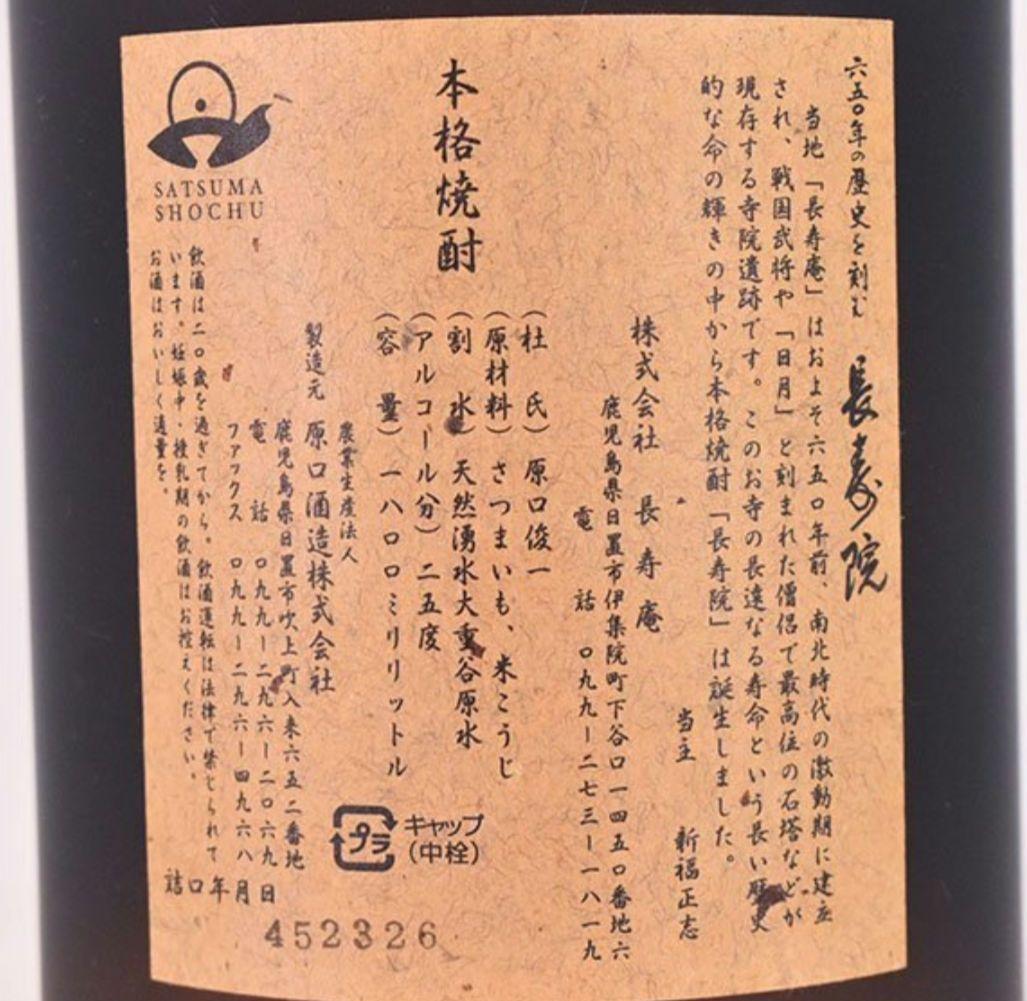 六五〇年の歴史を刻む 長寿院
当地「長寿庵」はおよそ六五〇年前、南北時代の激動期に建立
され、戦国武将や「日月」と刻まれた僧侶で最高位の石塔などが
現存する寺院遺跡です。このお寺の長遠なる寿命という長い歴史
的な命の輝きの中から本格焼酎「長寿院」は誕生しました。
当主 新福正志
株式会社 長寿庵
鹿児島県日置市伊集院町下谷口一四五〇番地六
電話 〇九九ー二七三ー一八一九
本格焼酎
(杜氏)原口俊一
(原材料)さつまいも、米こうじ
(割水)天然湧水大重谷原水
(アルコール分)二五度
(容量)一八〇〇ミリリットル
農業生産法人
製造元 原口酒造株式会社
鹿児島県日置市吹上町入来六五二番地
電話 〇九九ー二九六ー二〇六九
ファックス 〇九九ー二九六ー四九六八
SATSUMA
SHOCHU
飲酒は二〇歳を過ぎてから。飲酒運転は法律で禁じられて
います。妊娠中・授乳期の飲酒はお控えください。
お酒はおいしく適量を。
プラ
キャップ
(中栓)
詰口年月日
452326